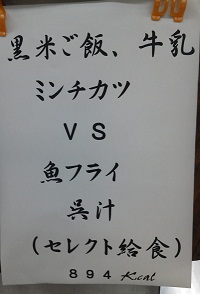 黒米ご飯、牛乳
ミンチカツ
VS
魚フライ
呉汁
(セレクト給食)
894 Kcal